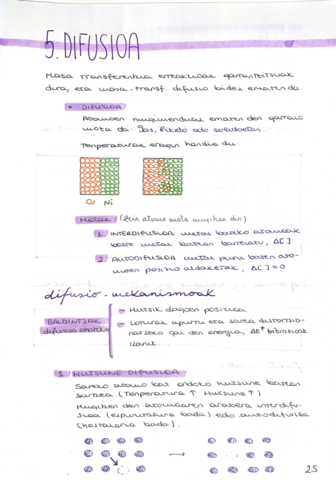 5. DIFUSIOA
Masa transferentzia erreakzioak garrantzitsuak
dira, eta masa-transf. difusio bidez ematen da.
• DIFUSIOA
Atomoen mugimenduak ematen den garraio
mota da. Gas, likido edo solidoetan
Tenperaturak eragin handia du
Cu Ni
Motak: (Zein atomo mota mugitzen den)
1. INTERDIFUSIOA metal bateko atomoak
beste metal batean barreiatu, Δ[ ]
2. AUTODIFUSIOA metal puru baten ato-
moen posizio aldaketak, Δ[ ]=0
difusio-mekanismoak
BALDINTZAK
difusioa
→ Hutsik dagoen posizioa
→ Loturak apurtu eta sarea distortsio-
natzeko gai den energia, ΔE↑ bibrazioak
izanik.
1. HUTSUNE DIFUSIOA
Sareko atomo bat ondoko hutsune batean
sartzea (Tenperatura ↑ Hutsune ↑)
Mugitzen den atomoaren arabera interdifu-
sioa (ezpurutasuna bada) edo autodifusioa
(hostalaria bada).
25